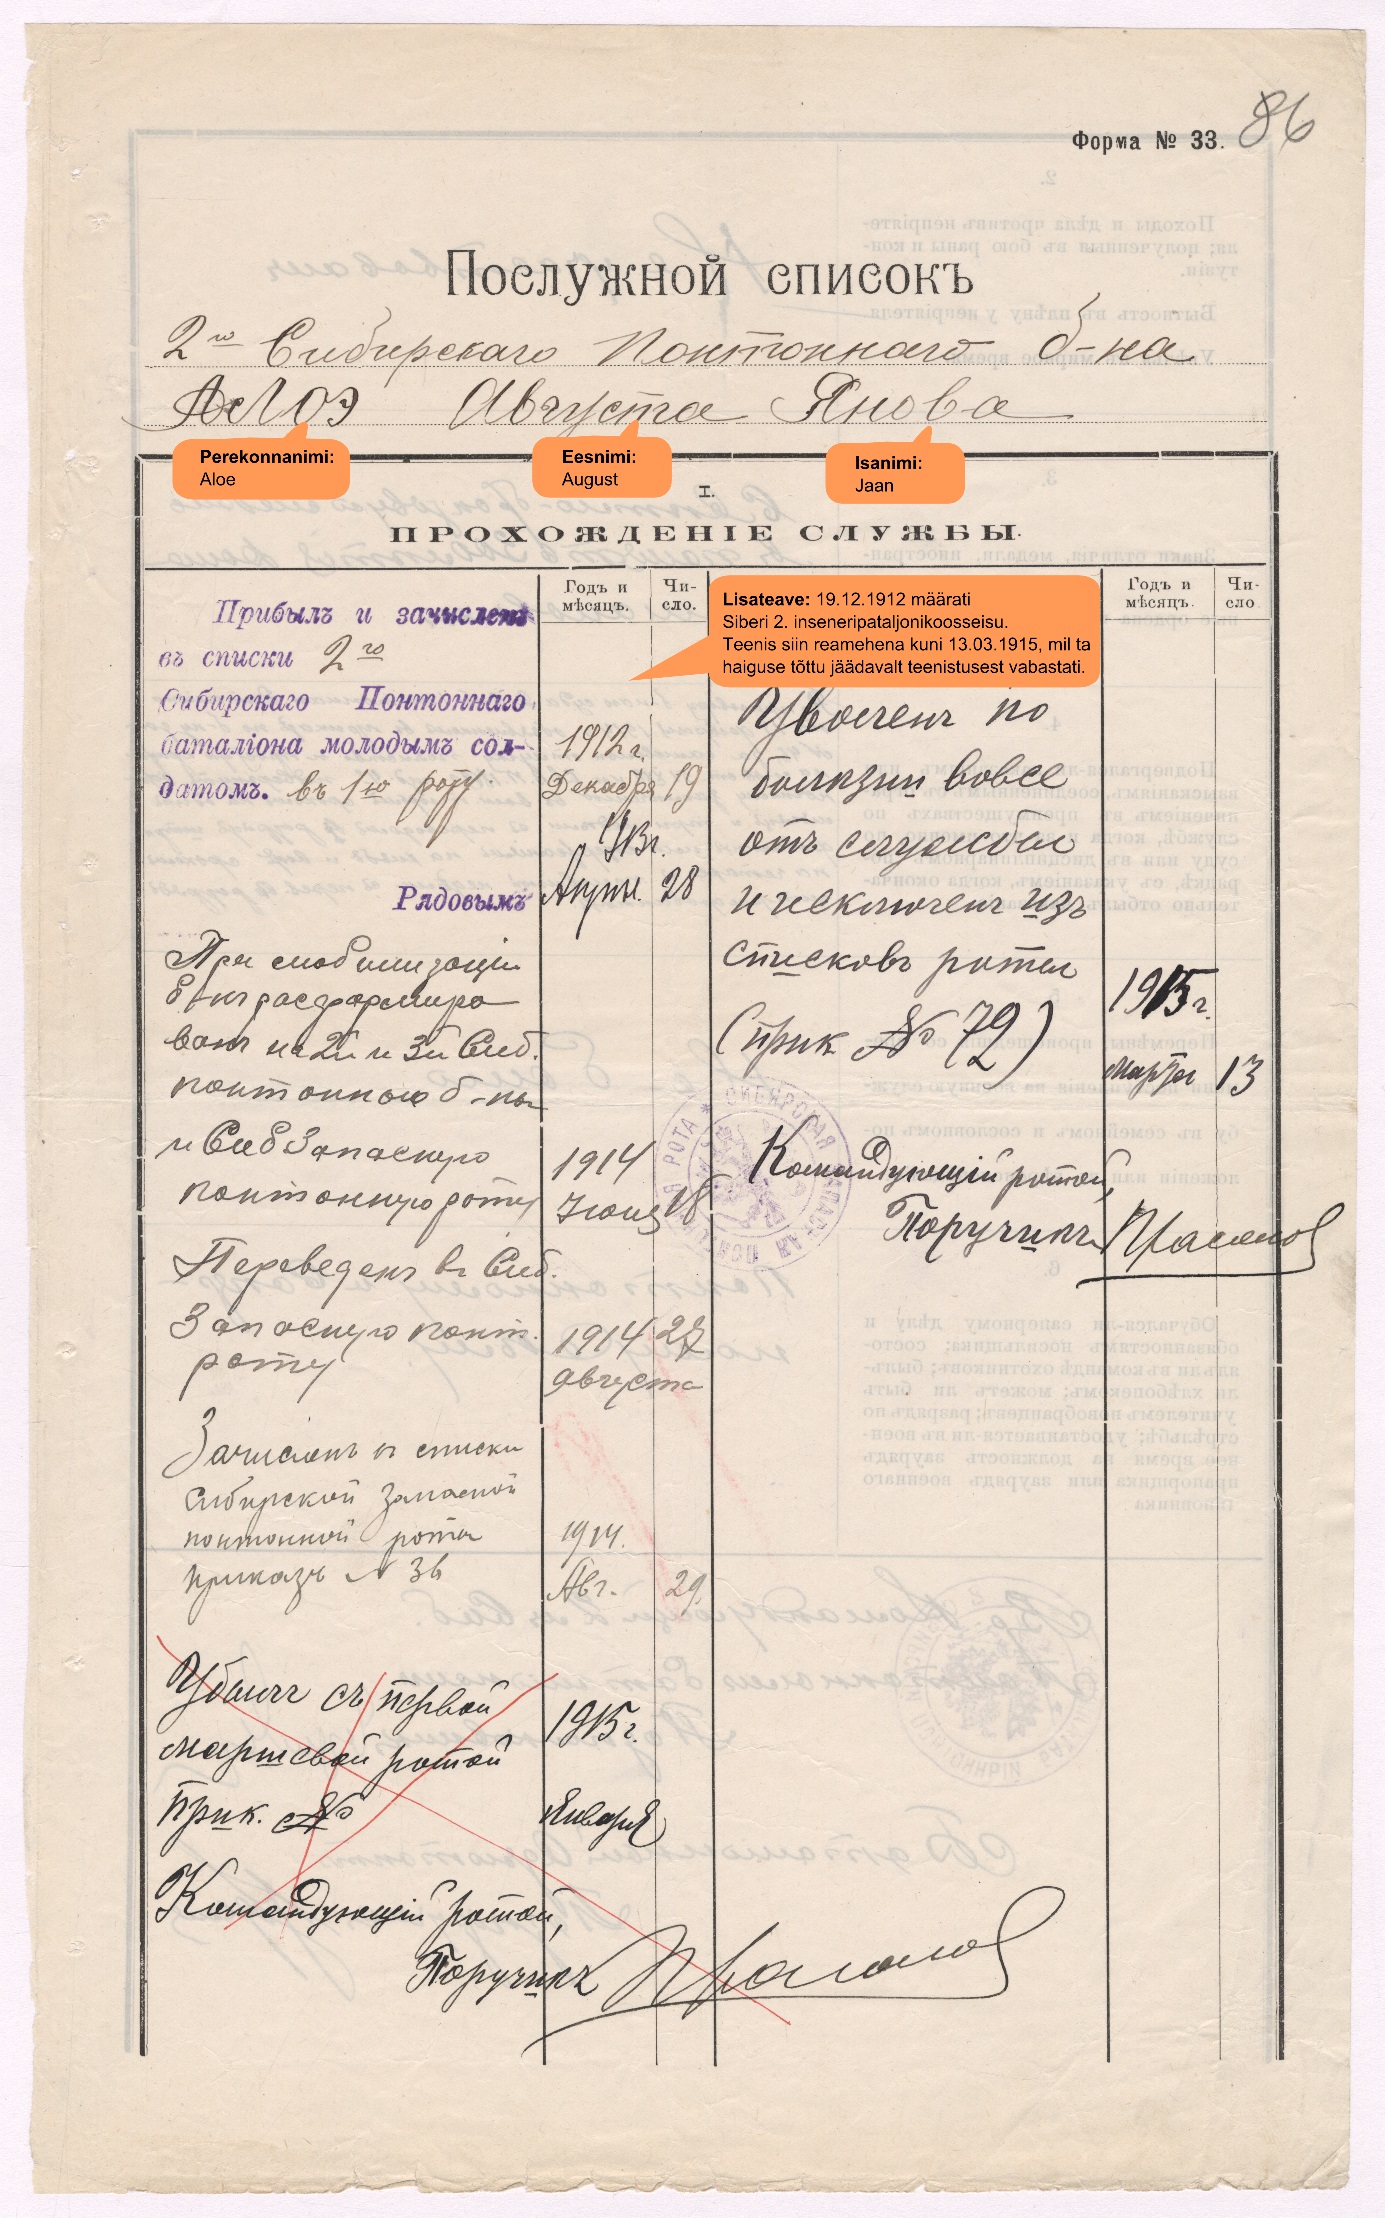 86
Форма № 33.
Послужной списокъ
2го Сибирскаго Понтоннаго б-на
Алоэ Августа Янова
Perekonnanimi:
Aloe
Eesnimi:
August
Isanimi:
Jaan
I.
ПРОХОЖДЕНІЕ СЛУЖБЫ.
Годъ и мѣсяцъ.
Чи-
сло.
Годъ и
мѣсяцъ.
Чи-
сло
Lisateave: 19.12.1912 määrati
Siberi 2. inseneripataljonikoosseisu.
Teenis siin reamehena kuni 13.03.1915, mil ta
haiguse tõttu jäädavalt teenistusest vabastati.
Прибылъ и зачисленъ
въ списки 2го
Сибирскаго Понтоннаго
баталіона молодымъ сол-
датомъ. въ 1ю роту.
1912 г.
Декабря 19
1913 г.
Рядовымъ
Апрѣл. 28
При мобилизаціи
б-нъ расформиро
ванъ на 2й и 3й Сиб.
понтонною б-ны
и Сиб Запасную
понтонную роту
1914
Іюля 18
Переведенъ въ Сиб.
Запасную понт.
роту
1914 27
августа
Зачисленъ въ списки
Сибирской Запасной
понтонной роты
приказъ № 36
1914.
Авг. 29.
Убылъ съ первой
маршевой ротой
Прик. №
1915 г.
Января
Командующій ротой,
Поручикъ
Уволенъ по
болѣзни вовсе
отъ службы
и исключенъ изъ
списковъ роты
(прик № 72)
1915 г.
Марта 13
Командующій ротой,
Поручикъ
СИБИРСКАЯ ЗАПАСНАЯ ПОНТОННАЯ РОТА